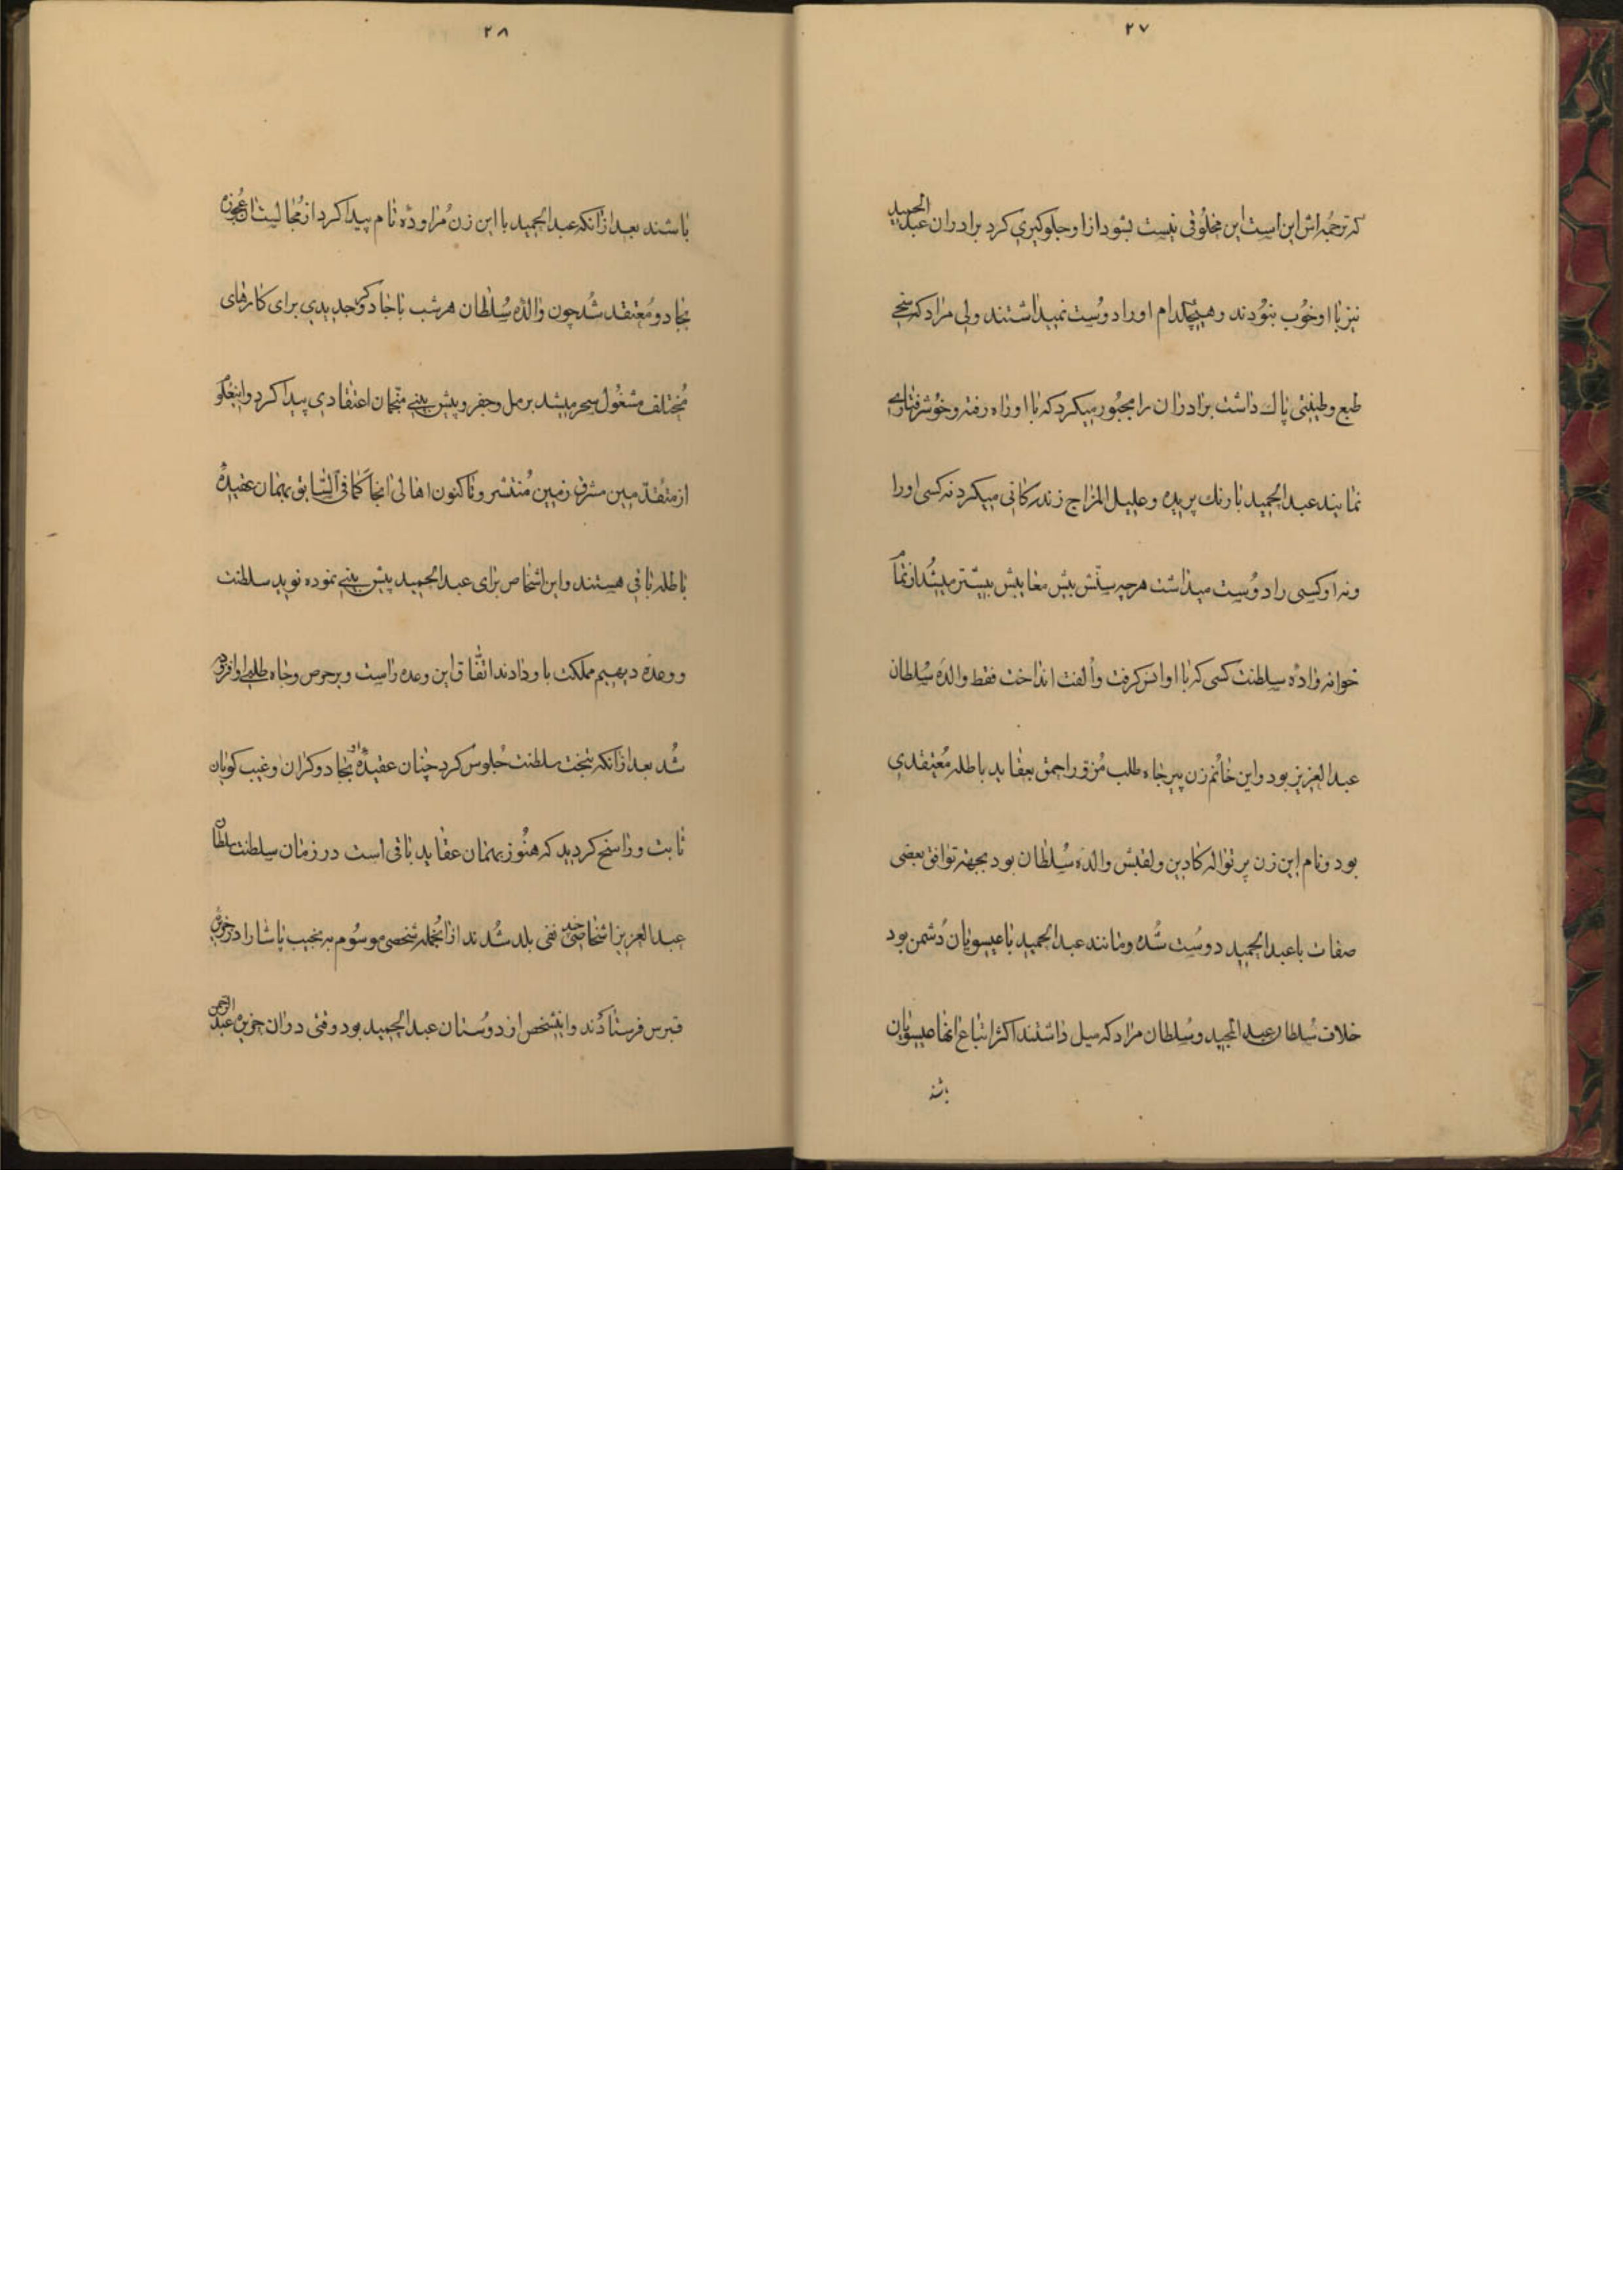 ۲۷
که ترجمه‌اش این است این مخلوقی نیست بشود از او جلوگیری کرد برادران عبدالحمید
نیز با او خوب نبودند و هیچکدام او را دوست نمیداشتند ولی مراد که سنجی
طبع و طینتی پاك داشت برادران را مجبور میکرد که با او راه رفته و خوشرفتاری
نمایند عبدالحمید با رنك پریده و علیل المزاج زندکانی میکرد نه کسی او را
و نه او کسی را دوست میداشت هرچه سنّش بیش معایبش بیشتر میشد از تمام
خوانه‌واده سلطنت کسی که با او انس کرفت و اُلفت انداخت فقط والده سلطان
عبدالعزیز بود و این خانُم زن پیر جاه طلب مُزوّر احمق بعقاید باطله مُعتقدی
بود و نام این زن پرتواله کادین و لقبش والده سُلطان بود بجهته توافق بعضی
صفات با عبدالحمید دوست شُده و مانند عبدالحمید با عیسویان دُشمن بود
خلاف سُلطان عبدالمجید و سُلطان مراد که میل داشتند اکثر اتباع انها عیسویان
باشند
۲۸
باشند بعد از آنکه عبدالحمید با این زن مُراوده تام پیدا کرد از مُجالیست ان عجوزه
بجادو مُعتقد شُد چون والده سُلطان هر شب با جادوکر جدیدی برای کارهای
مُختلف مشغول سحر میشد برمل و جفر و پیش بینی منجمان اعتقادی پیدا کرد و اینغلو
از متقدّمین مشرق زمین مُنتشر و تا کنون اهالی انجا کما فی السّابق بهمان عقیدهٔ
باطله باقی هستند و این اشخاص برای عبدالحمید پیش بینی نموده نوید سلطنت
و وعده دیهیم مملکت باو دادند اتّفاق این وعده راست و برحرص و جاه طلبی او افزوده
شُد بعد از آنکه بتخت سلطنت جُلوس کرد چنان عقیدهٔ او بجادوکران و غیب کویان
ثابت و راسخ کردید که هنُوز بهمان عقاید باقی است در زمان سلطنت سلطان
عبدالعزیز اشخاصی چند نفی بلد شُدند از انجُمله شخصی موسُوم به نجیب پاشا را در جزیرهٔ
قبرس فرستادند و اینشخص از دوستان عبدالحمید بود وقتی در ان جزیره عبدالرحمن